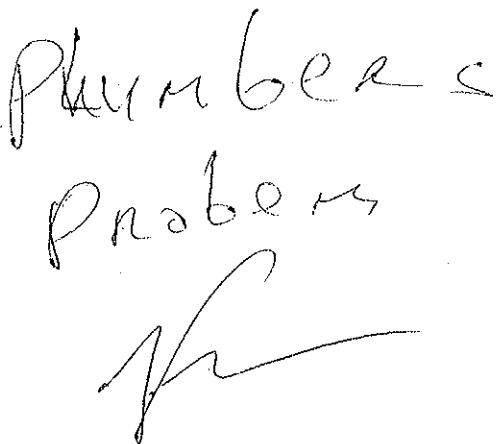 Plumbers
Probem